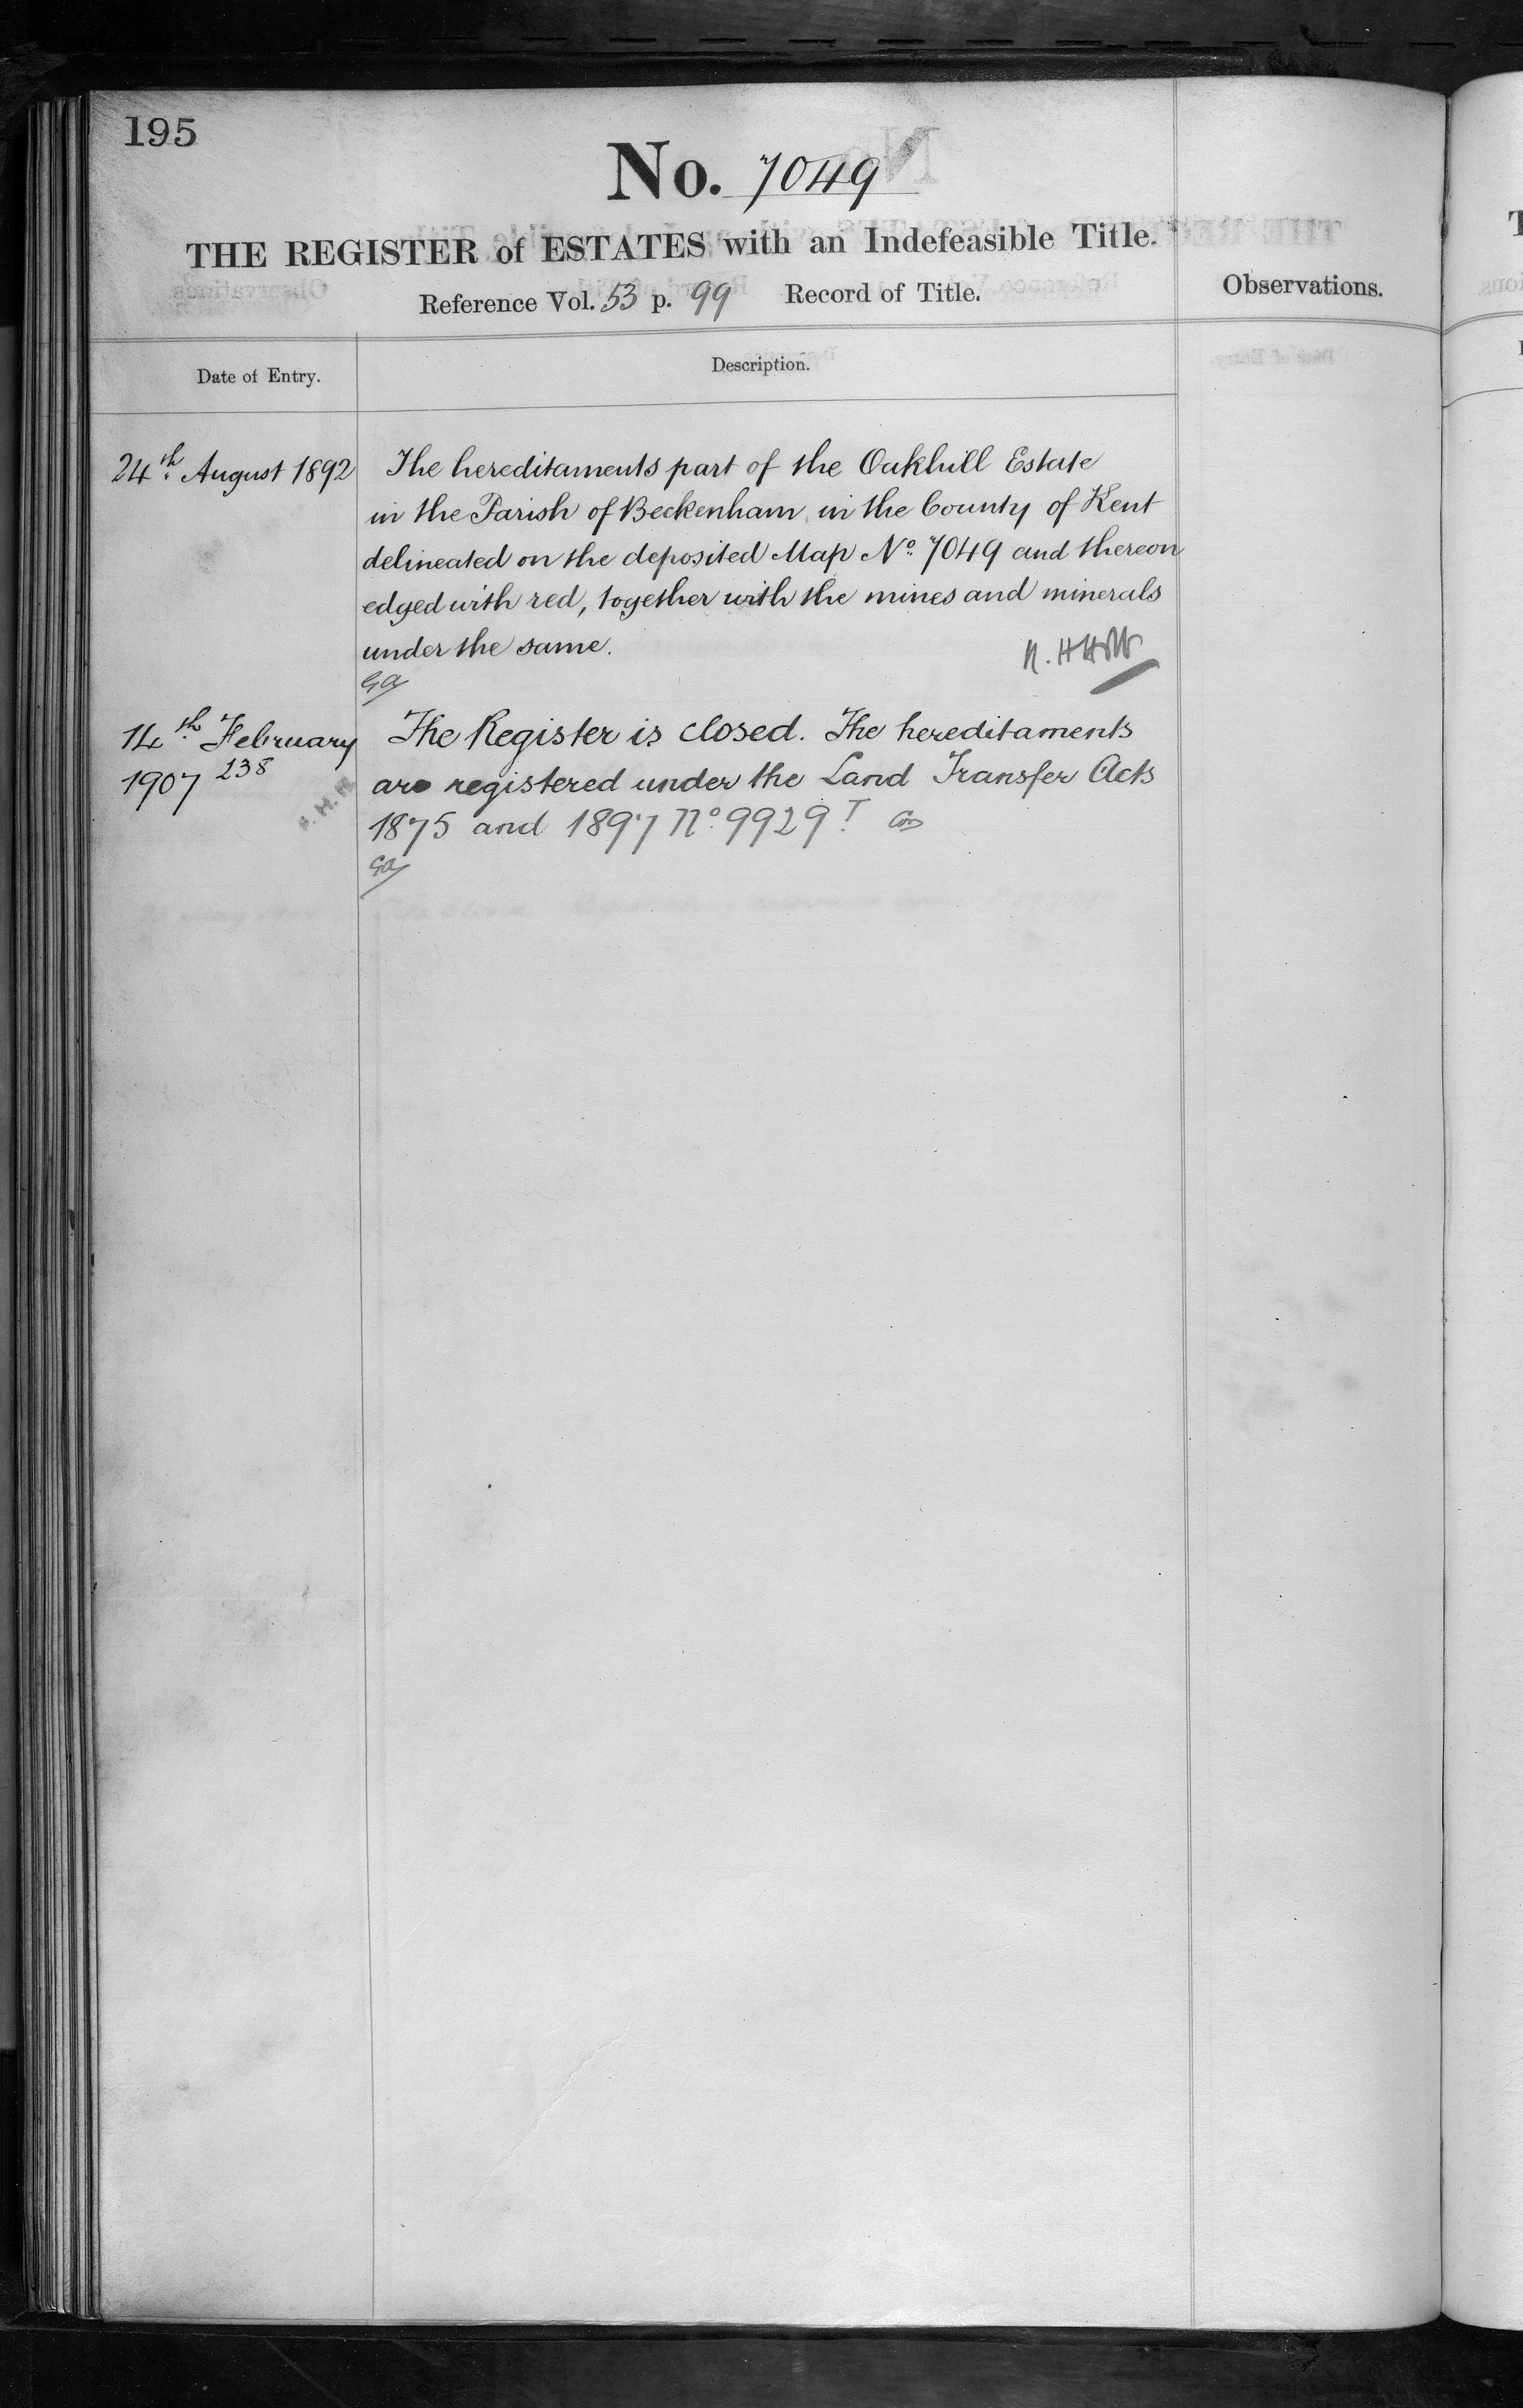 195
No. 7049
THE REGISTER of ESTATES with an Indefeasible Title.
Reference Vol. 53 p. 99 Record of Title.
Observations.
Date of Entry.
Description.
24th August 1892
The hereditaments part of the Oakhill Estate
in the Parish of Beckenham in the County of Kent
delineated on the deposited Map No. 7049 and thereon
edged with red, together with the mines and minerals
under the same.
14th February
1907 238
The Register is closed. The hereditaments
are registered under the Land Transfer Acts
1875 and 1897 No. 9929T